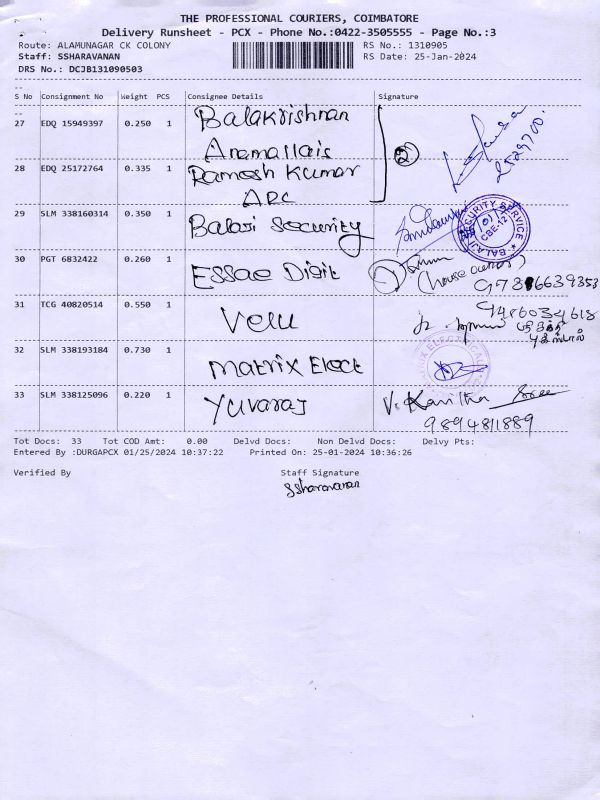 THE PROFESSIONAL COURIERS, COIMBATORE
Delivery Runsheet - PCX - Phone No.:0422-3505555 - Page No.:3
Route: ALAMUNAGAR CK COLONY RS No.: 1310905
Staff: SSHARAVANAN RS Date: 25-Jan-2024
DRS No.: DCJB131090503
S No Consignment No Weight PCS Consignee Details Signature
27 EDQ 15949397 0.250 1 Balakrishnan
Anamallais
28 EDQ 25172764 0.335 1 Ramesh Kumar
ADC
2
29 SLM 338160314 0.350 1 Balaji Security
SECURITY SERVICE
CBE-12
BALAJI
30 PGT 6832422 0.260 1 Essae Digit
(house owner)
31 TCG 40820514 0.550 1 Velu
9486034618
32 SLM 338193184 0.730 1 Matrix Elect
33 SLM 338125096 0.220 1 Yuvaraj V. Kavitha
9894811889
Tot Docs: 33 Tot COD Amt: 0.00 Delvd Docs: Non Delvd Docs: Delvy Pts:
Entered By :DURGAPCX 01/25/2024 10:37:22 Printed On: 25-01-2024 10:36:26
Verified By Staff Signature
SSharavanan